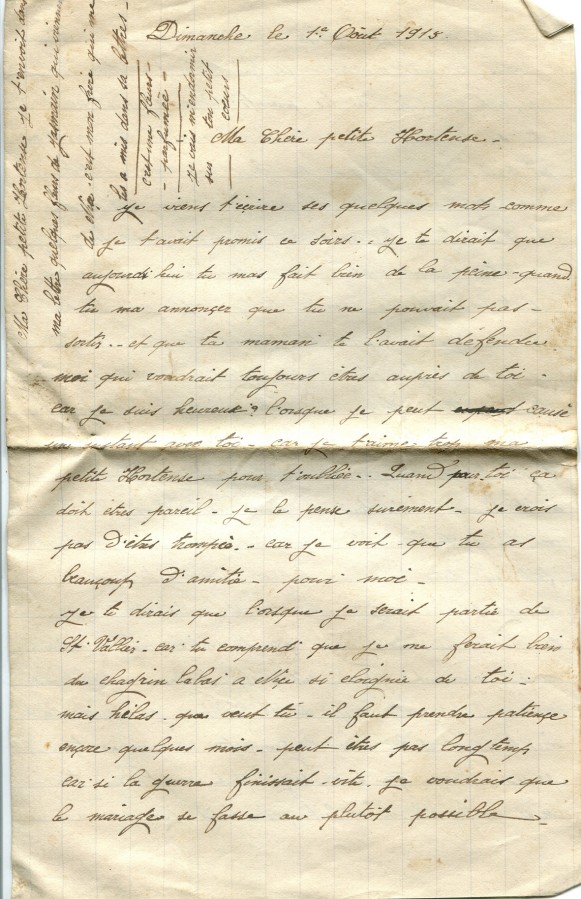 Dimanche le 1e Août 1915
Ma Chère petite Hortense -
je viens t'éçire ses quelques mots comme
je t'avait promis ce soirs.. je te dirait que
aujourd'hui tu mas fait bien de la peine - quand
tu ma annonçer que tu ne pouvait pas -
sortir.. et que ta maman te l'avait défendue
moi qui voudrait toujours êtres auprès de toi -
car je suis heureux? lorsque je peut causé
un instant avec toi - car je t'aime trop ma
petite Hortense pour t'oublier.. Quand pour toi ça
doit êtres pareil - je le pense surement - je crois
pas d'êtres trompée.. car je voit que tu as
beauçoup d'amitié - pour moi -
je te dirais que lorsque je serait partie de
St Vallier - car tu comprend que je me ferait bien
du chagrin labas a être si éloignie de toi -
mais hélas - que veut tu - il faut prendre patiençe
ençore quelques mois - peut êtres pas longtemps
car si la guerre finissait vite - je voudrais que
le mariage se fasse au plutôt possible -
Ma Chère petite Hortense je t'envoit dans
ma lettre quelques fleurs de
de elle - c'est mon frère qui me
les a mis dans sa lettres -
c'est une fleurs -
- parfumée -
je vais m'endormir
sur ton petit
coeurs